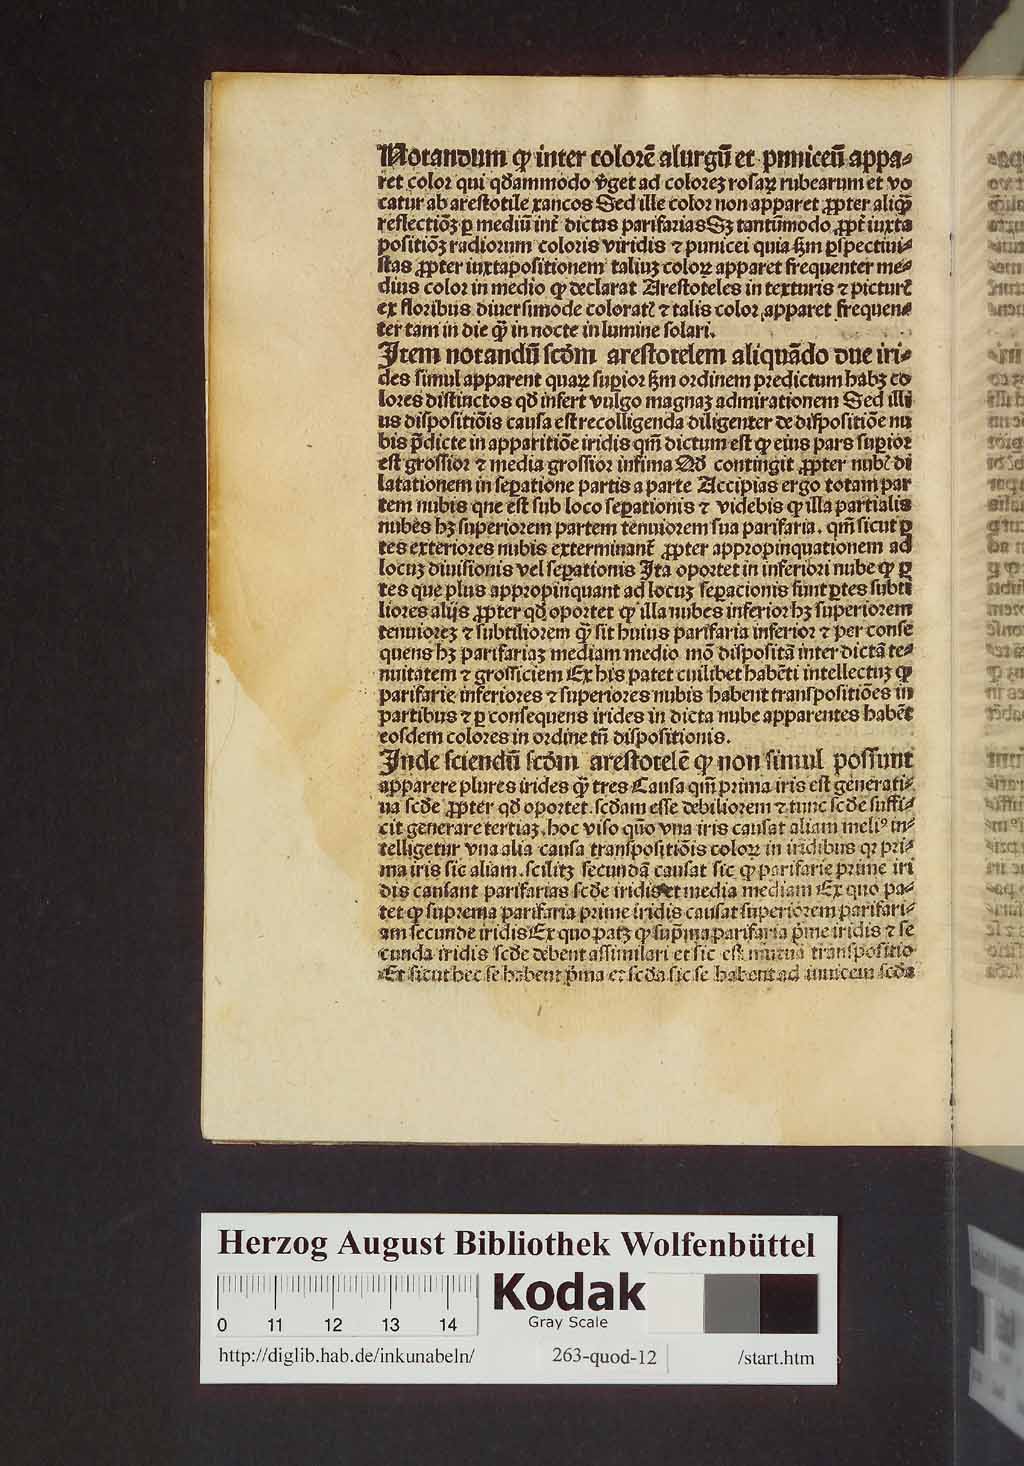 Notandum ꝙ inter colorē alurgū et puniceū appa⸗
ret color qui qđammodo v̄get ad colorez rosaꝝ rubearum et vo
catur ab arestotile xancos Sed ille color non apparet ꝓpter aliqua᷒
reflectiōꝫ ꝑ mediū int̄ dictas parifarias Sꝫ tantūmodo ꝓpt̄ iuxta
positiōꝫ radiorum coloris viridis ⁊ punicei quia ẜm ꝑspectiui⸗
stas ꝓpter iuxtapositionem taliuꝫ coloꝝ apparet frequenter me⸗
dius color in medio ꝙ declarat Arestoteles in texturis ⁊ pictur̄
ex floribus diuersimode colorat̄ ⁊ talis color apparet frequen⸗
ter tam in die ꝙ̄ in nocte in lumine solari.
Item notandū scđm arestotelem aliquādo due iri⸗
des simul apparent quaꝝ suꝑior ẜm ordinem predictum habꝫ co
lores distinctos qđ infert vulgo magnaꝫ admirationem Sed illi
us dispositiōis causa est recolligenda diligenter de dispositiōe nu
bis p̄dicte in apparitiōe iridis qm̄ dictum est ꝙ eius pars suꝑior
est grossior ⁊ media grossior infima Qđ contingit ꝓpter nub̄ di
latationem in seꝑatione partis a parte Accipias ergo totam par
tem nubis que est sub loco seꝑationis ⁊ videbis ꝙ illa partialis
nubes hꝫ superiorem partem tenuiorem sua parifaria. qm̄ sicut ꝑ
tes exteriores nubis exterminant̄ ꝓpter appropinquationem ad
locuꝫ diuisionis vel seꝑationis Ita oportet in inferiori nube ꝙ ꝑ
tes que plus appropinquant ad locuꝫ seꝑacionis sunt ꝑtes subti
liores alijs ꝓpter qđ oportet ꝙ illa nubes inferior hꝫ superiorem
tenuioreꝫ ⁊ subtiliorem ꝙ̄ sit huius parifaria inferior ⁊ per conse
quens hꝫ parifariaꝫ mediam medio mō dispositā inter dictā te⸗
nuitatem ⁊ grossiciem Ex his patet cuilibet habēti intellectuꝫ ꝙ
parifarie inferiores ⁊ superiores nubis habent transpositiōes in
partibus ⁊ ꝑ consequens irides in dicta nube apparentes habēt
eosdem colores in ordine tn̄ dispositionis.
Inde sciendū scđm arestotelē ꝙ non simul possunt
apparere plures irides ꝙ̄ tres Causa qm̄ prima iris est generati⸗
ua scđe ꝓpter qđ oportet. scđam esse debiliorem ⁊ tunc scđe suffi⸗
cit generare tertiaꝫ. hoc viso quō vna iris causat aliam meliꝰ in⸗
telligetur vna alia causa transpositiōis coloꝝ in iridibus qꝛ pri⸗
ma iris sic aliam. scilitꝫ secundā causat sic ꝙ parifarie prime iri
dis causant parifarias scđe iridis et media mediam Ex quo pa⸗
tet ꝙ suprema parifaria prime iridis causat superiorem parifari⸗
am secunde iridis Ex quo patꝫ ꝙ sup̄ma parifaria p̄me iridis ⁊ se
cunda iridis scđe debent assimilari et sic est mutua transpositio
Et sicut hec se habent p̄ma et scđa sic se habent ad inuicem scđa
Herzog August Bibliothek Wolfenbüttel
0 11 12 13 14
Kodak
Gray Scale
http://diglib.hab.de/inkunabeln/ 263-quod-12 /start.htm